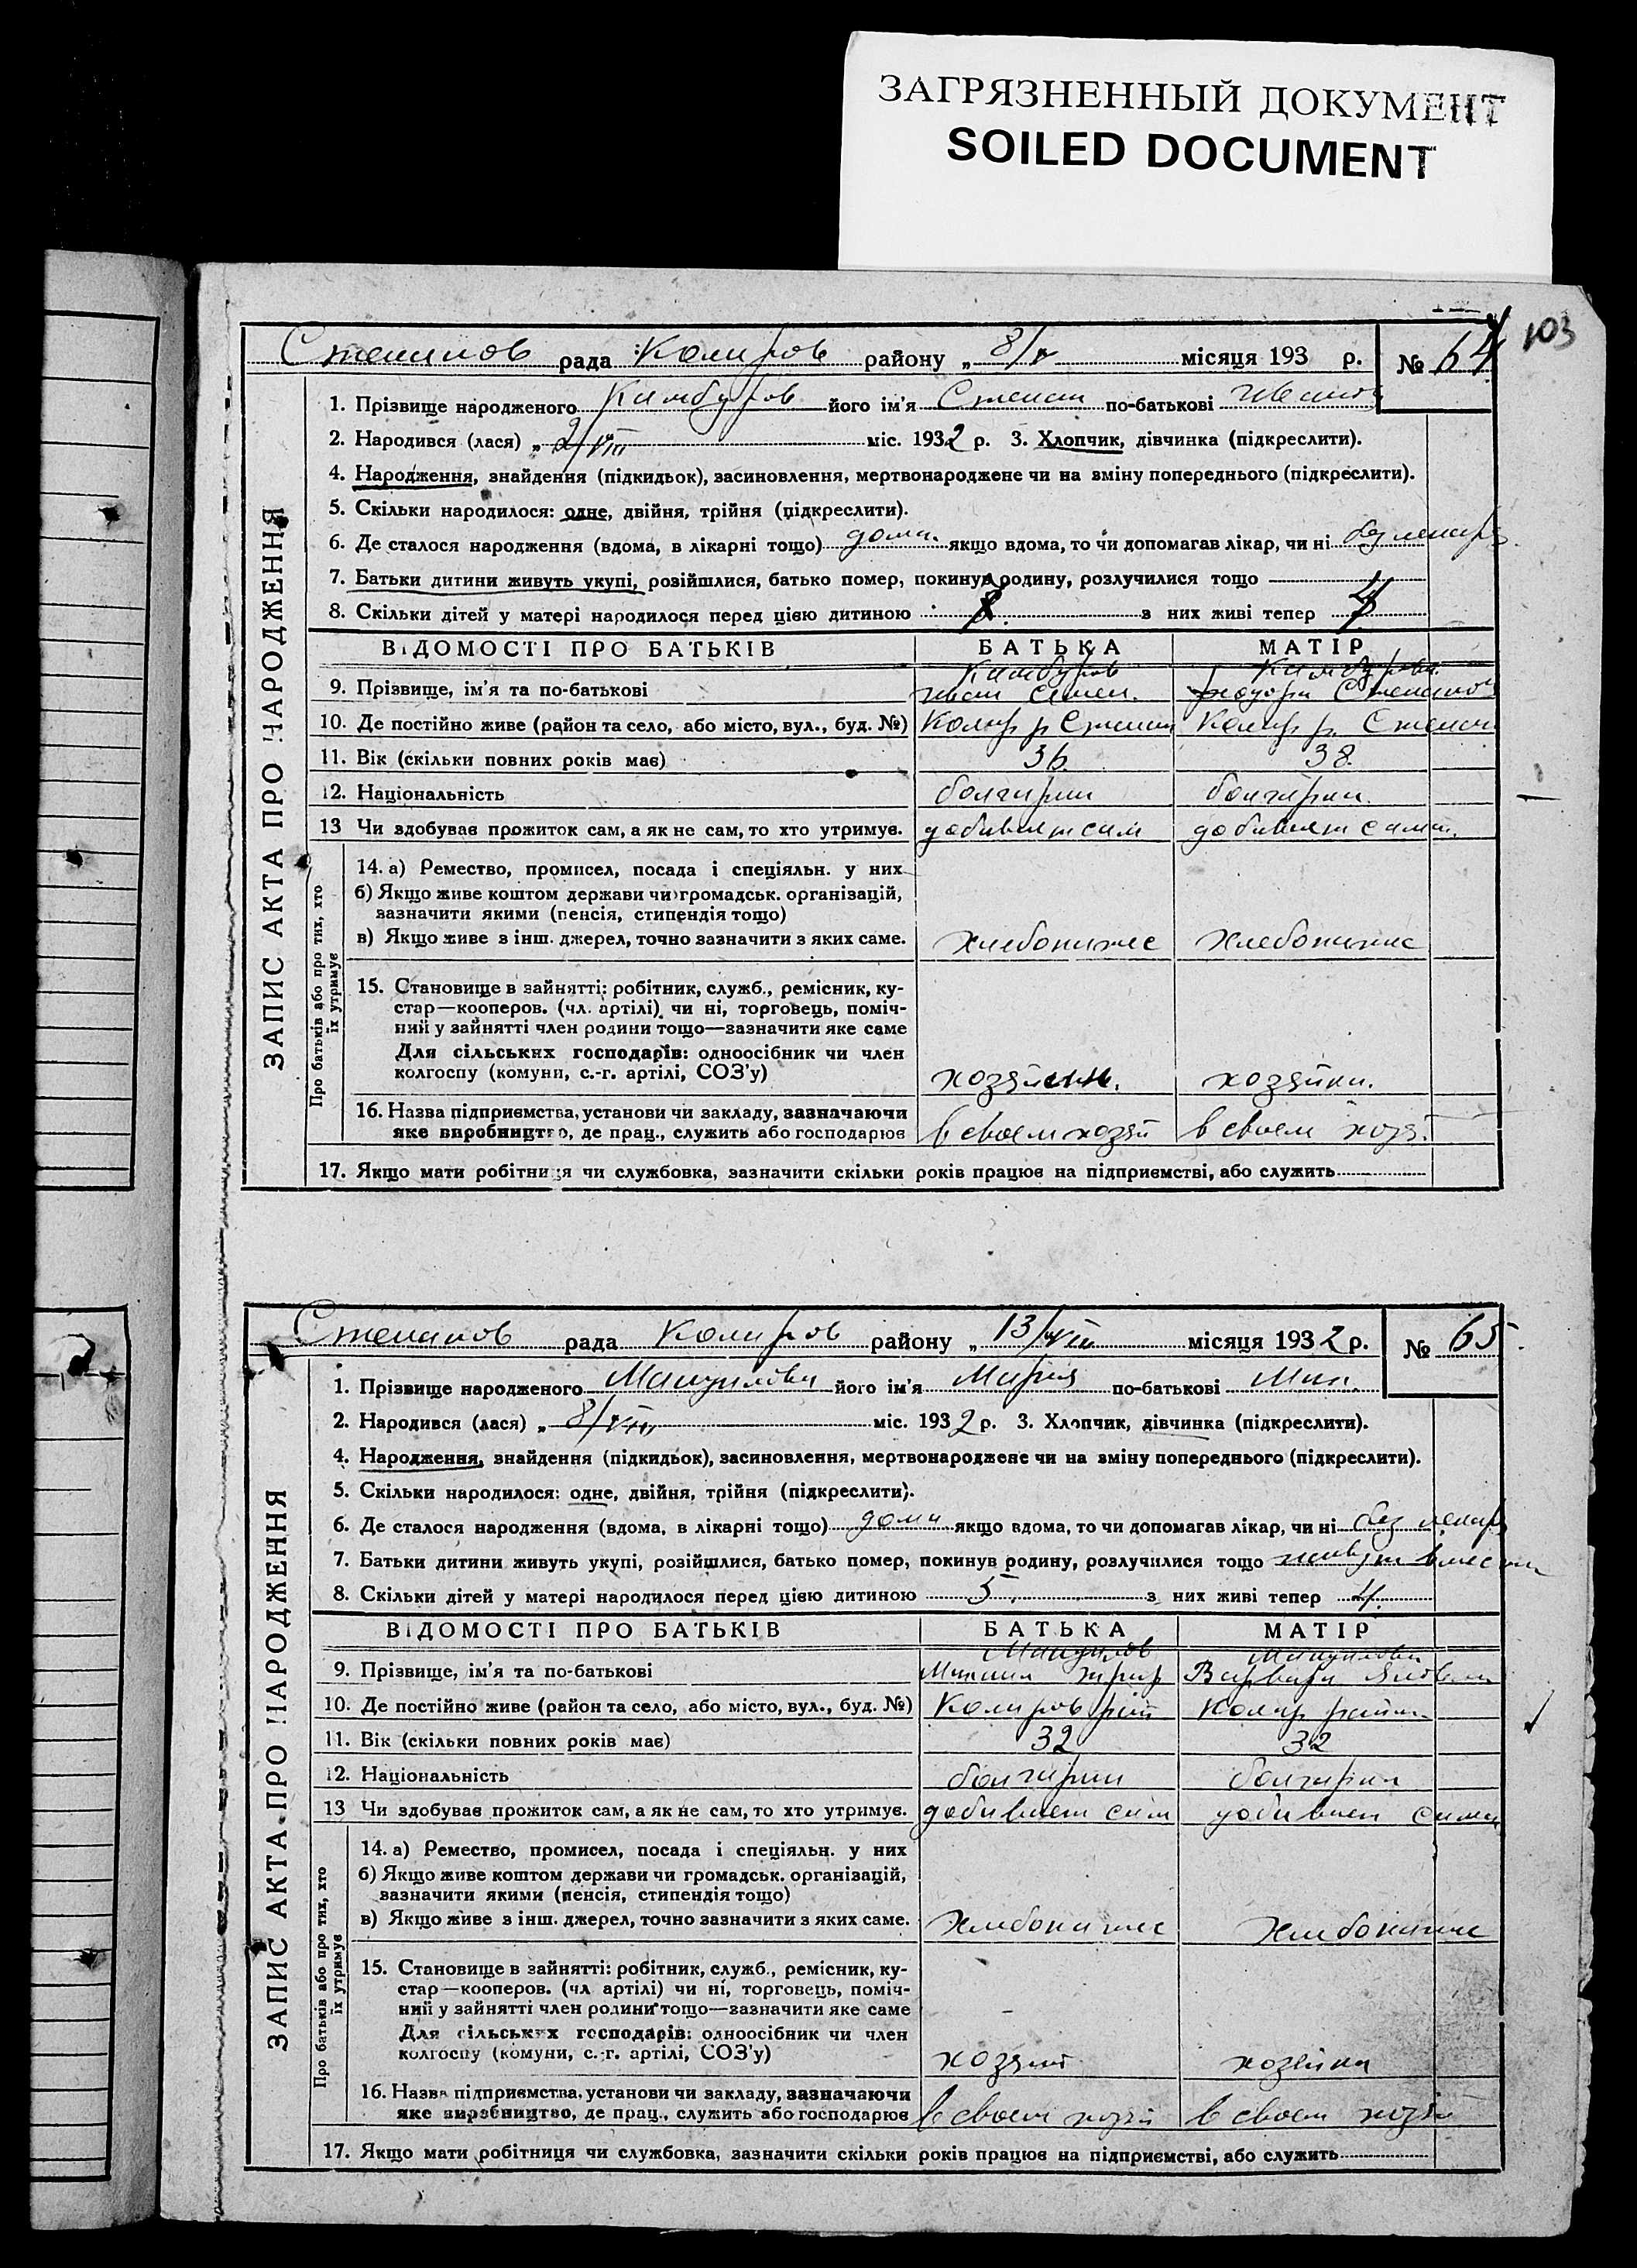 ЗАГРЯЗНЕННЫЙ ДОКУМЕНТ
SOILED DOCUMENT
103
Степанов рада Колар ров району „ 8/ місяця 193 р. № 64
ЗАПИС АКТА ПРО НАРОДЖЕННЯ
1. Прізвище народженого Камбуров його ім'я Степан по-батькові Иванов
2. Народився (лася) „ 2/VIII міс. 1932 р. 3. Хлопчик, дівчинка (підкреслити).
4. Народження, знайдення (підкидьок), засиновлення, мертвонароджене чи на зміну попереднього (підкреслити).
5. Скільки народилося: одне, двійня, трійня (підкреслити).
6. Де сталося народження (вдома, в лікарні тощо) дома. якщо вдома, то чи допомагав лікар, чи ні без лекаря
7. Батьки дитини живуть укупі, розійшлися, батько помер, покинув родину, розлучилися тощо
8. Скільки дітей у матері народилося перед цією дитиною з них живі тепер 4
ВІДОМОСТІ ПРО БАТЬКІВ БАТЬКА МАТІР
9. Прізвище, ім'я та по-батькові Камбуров Иван Семен. Камбурова Степанов
10. Де постійно живе (район та село, або місто, вул., буд. №) Колар р Степан Колар р. Степан
11. Вік (скільки повних років має) 36 38
12. Національність болгарин болгарин.
13 Чи здобував прожиток сам, а як не сам, то хто утримує. добивает сам добивает сама.
Про батьків або про тих, хто
їх утримує
14. а) Ремество, промисел, посада і спеціяльн. у них
б) Якщо живе коштом держави чи громадськ. організацій,
зазначити якими (пенсія, стипендія тощо)
в) Якщо живе з інш. джерел, точно зазначити з яких саме. хлебопашес хлебопашес
15. Становище в зайнятті: робітник, служб., ремісник, ку-
стар—кооперов. (чл. артілі) чи ні, торговець, поміч-
ний у зайнятті член родини тощо—зазначити яке саме
Для сільських господарів: одноосібник чи член
колгоспу (комуни, с.-г. артілі, СОЗ'у) хозяин. хозяйка.
16. Назва підприємства, установи чи закладу, зазначаючи
яке виробництво, де прац., служить або господарює в своем хозяй в своем хозя.
17. Якщо мати робітниця чи службовка, зазначити скільки років працює на підприємстві, або служить
Степанов рада Коларов району „ 13/VIII місяця 1932 р. № 65
ЗАПИС АКТА ПРО НАРОДЖЕННЯ
1. Прізвище народженого Мануилова його ім'я Мария по-батькові Мин.
2. Народився (лася) „ 8/VIII міс. 1932 р. 3. Хлопчик, дівчинка (підкреслити).
4. Народження, знайдення (підкидьок), засиновлення, мертвонароджене чи на зміну попереднього (підкреслити).
5. Скільки народилося: одне, двійня, трійня (підкреслити).
6. Де сталося народження (вдома, в лікарні тощо) дома якщо вдома, то чи допомагав лікар, чи ні без лекаря
7. Батьки дитини живуть укупі, розійшлися, батько помер, покинув родину, розлучилися тощо живут вместе
8. Скільки дітей у матері народилося перед цією дитиною 5 з них живі тепер 4.
ВІДОМОСТІ ПРО БАТЬКІВ БАТЬКА МАТІР
9. Прізвище, ім'я та по-батькові Мануилов Мануилова Варвара
10. Де постійно живе (район та село, або місто, вул., буд. №) Коларов рай Колар район
11. Вік (скільки повних років має) 32 32
12. Національність болгарин болгарин
13 Чи здобував прожиток сам, а як не сам, то хто утримує. добивает сам добивает сама
Про батьків або про тих, хто
їх утримує
14. а) Ремество, промисел, посада і спеціяльн. у них
б) Якщо живе коштом держави чи громадськ. організацій,
зазначити якими (пенсія, стипендія тощо)
в) Якщо живе з інш. джерел, точно зазначити з яких саме. хлебопашес хлебопашес
15. Становище в зайнятті: робітник, служб., ремісник, ку-
стар—кооперов. (чл артілі) чи ні, торговець, поміч-
ний у зайнятті член родини тощо—зазначити яке саме
Для сільських господарів: одноосібник чи член
колгоспу (комуни, с.-г. артілі, СОЗ'у) хозяин хозяйка
16. Назва підприємства, установи чи закладу, зазначаючи
яке виробництво, де прац., служить або господарює в своем хозяй в своем хозяй
17. Якщо мати робітниця чи службовка, зазначити скільки років працює на підприємстві, або служить